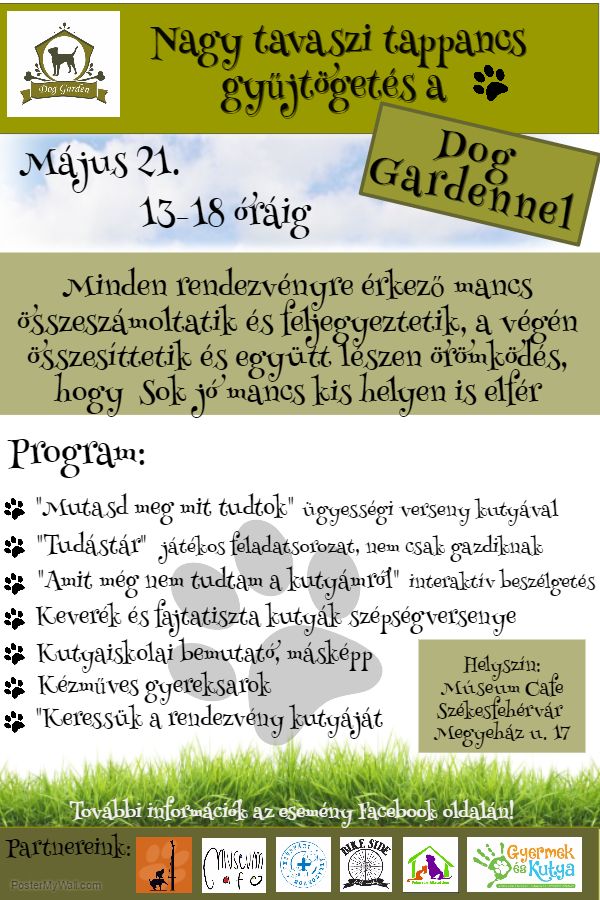 Dog Garden
Nagy tavaszi tappancs
gyűjtögetés a
Dog
Gardennel
Május 21.
13-18 óráig
Minden rendezvényre érkező mancs
összeszámoltatik és feljegyeztetik, a végén
összesíttetik és együtt lészen örömködés,
hogy Sok jó mancs kis helyen is elfér
Program:
"Mutasd meg mit tudtok" ügyességi verseny kutyával
"Tudástár" játékos feladatsorozat, nem csak gazdiknak
"Amit még nem tudtam a kutyámról" interaktív beszélgetés
Keverék és fajtatiszta kutyák szépségversenye
Kutyaiskolai bemutató, másképp
Kézműves gyereksarok
"Keressük a rendezvény kutyáját
Helyszín:
Múseum Cafe
Székesfehérvár
Megyeház u. 17
További információk az esemény Facebook oldalán!
Partnereink:
museum
Cafe
BIKE SIDE
Gyermek
és Kutya
PosterMyWall.com